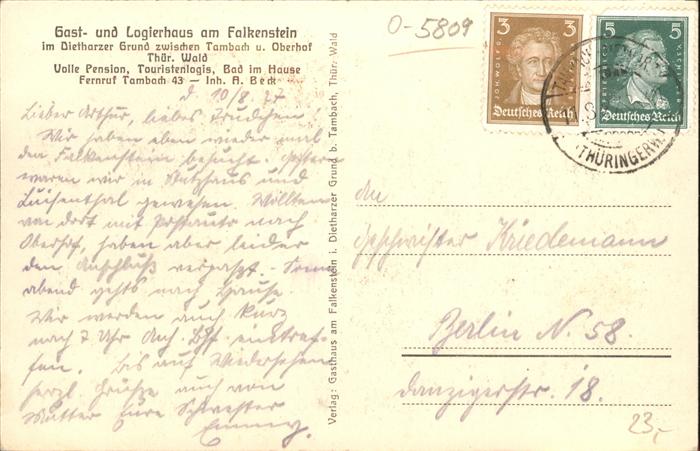 Gast- und Logierhaus am Falkenstein
im Dietharzer Grund zwischen Tambach u. Oberhof
Thür. Wald
Volle Pension, Touristenlogis, Bad im Hause
Fernruf Tambach 43 — Inh. A. Beck
d. 10/8. 27
Lieber Arthur, liebes Trudchen!
Wir haben eben wieder mal
den Falkenstein besucht. Gestern
waren wir in Stutzhaus und
Luisenthal gewesen. Wollten
von dort mit Postauto nach
Oberhof, haben aber leider
den Anschluß verpaßt. Sonn-
abend gehts nach Hause.
Wir werden auch kurz
nach 7 Uhr Anh. Bhf. eintref-
fen. Bis auf Wiedersehen
herzl. Grüße auch von
Mutter Eure Schwester
Emmy.
Verlag: Gasthaus am Falkenstein i. Dietharzer Grund b. Tambach, Thür. Wald
0-5809
3 3
JOH. WOLFG.
Deutsches Reich
5 5
FRIEDRICH
Deutsches Reich
(THÜRINGERW.)
An
Geschwister Kriedemann
Berlin N. 58.
Danzigerstr. 18.
23,-